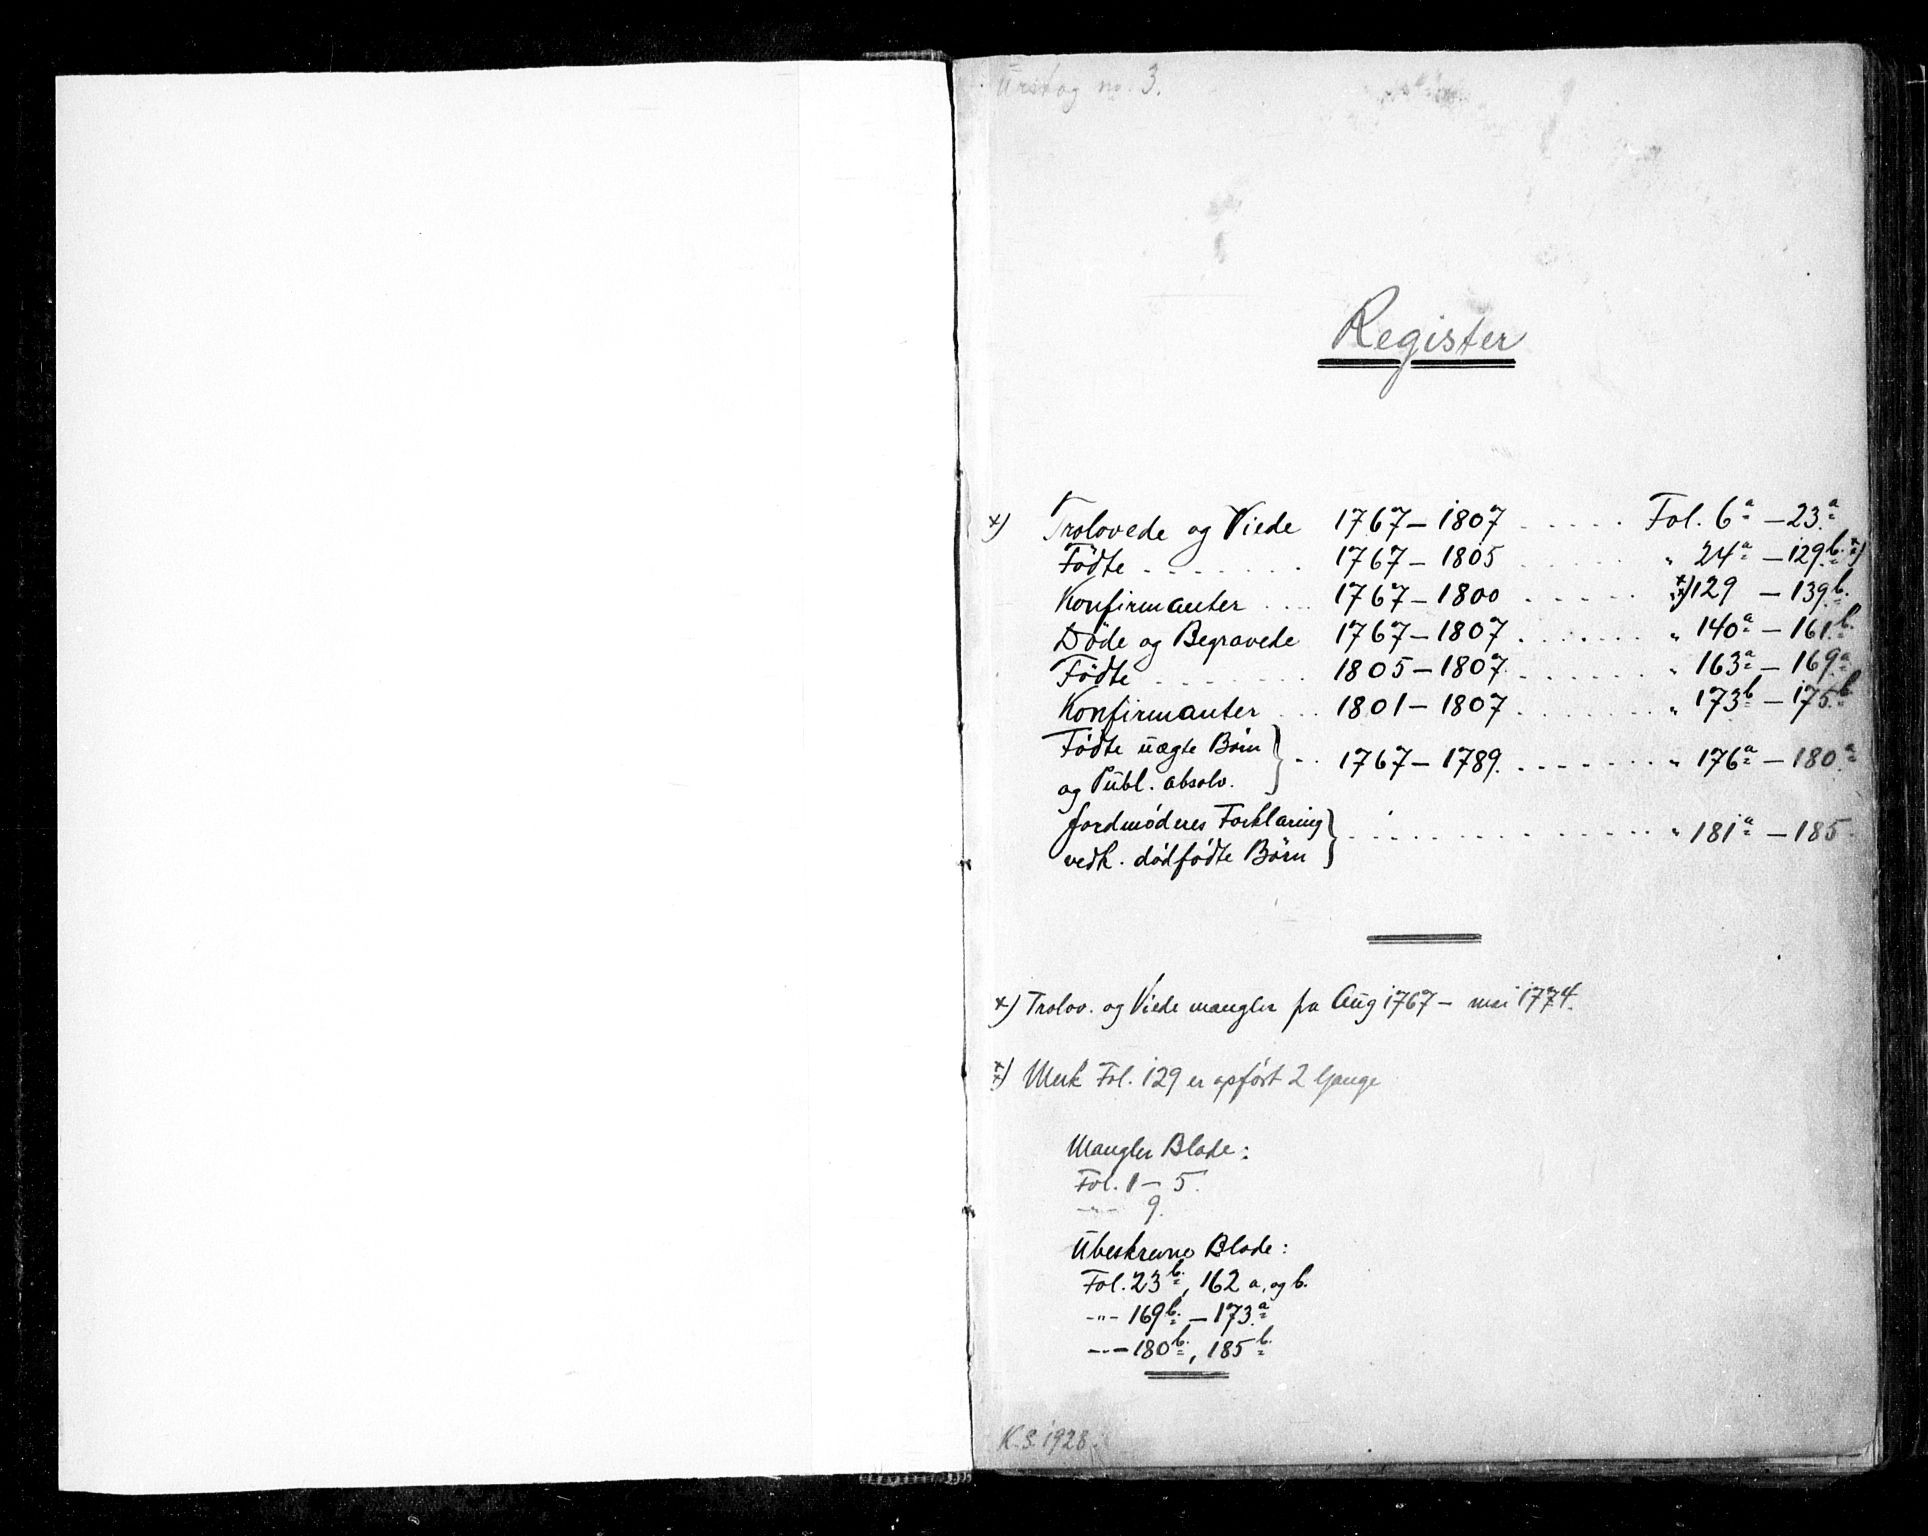 Urskog no. 3.
Register
×) Trolovede og Viede 1767 – 1807 . . . . . Fol. 6a – 23a
Födte . . . . . 1767 – 1805 . . . . . " 24a – 129b. ××)
Konfirmanter . . . . 1767 – 1800 . . . . . ××) 129 – 139b.
Döde og Begravede 1767 – 1807 . . . . . " 140a – 161b.
Födte . . . . . 1805 – 1807 . . . . . " 163a – 169a
Konfirmanter . . . 1801 – 1807 . . . . . " 173b – 175b
Födte uægte Börn } . . 1767 – 1789. . . . . . " 176a – 180a
og Publ. absolv.
Jordmödres Forklaring } . . . . . " 181a – 185.
vedk. dödfödte Börn
×) Trolov. og Viede mangler fra Aug 1767 – mai 1774.
××) Merk Fol. 129 er opfört 2 Gange
Mangler Blade:
Fol. 1 – 5.
–"– 9.
Ubeskrevne Blade:
Fol. 23b., 162 a. og b.
–"– 169b. – 173a
–"– 180b., 185b.
K.S. 1928.